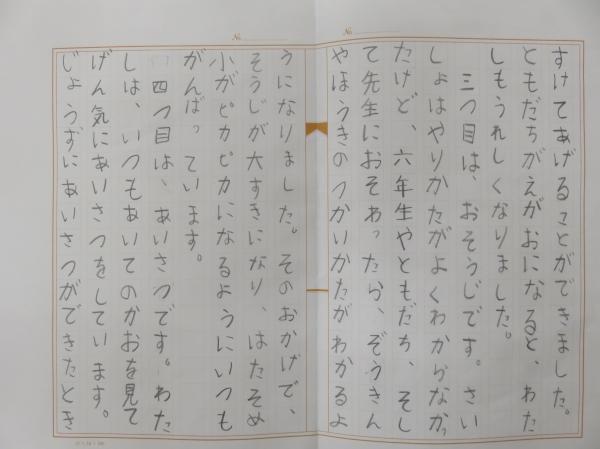 すけてあげることができました。
ともだちがえがおになると、わた
しもうれしくなりました。
三つ目は、おそうじです。さい
しょはやりかたがよくわからなかっ
たけど、六年生やともだち、そし
て先生におそわったら、ぞうきん
やほうきのつかいかたがわかるよ
うになりました。そのおかげで、
そうじが大すきになり、はたそめ
小がピカピカになるようにいつも
がんばっています。
四つ目は、あいさつです。わた
しは、いつもあいてのかおを見て
げん気にあいさつをしています。
じょうずにあいさつができたとき
No.
No.